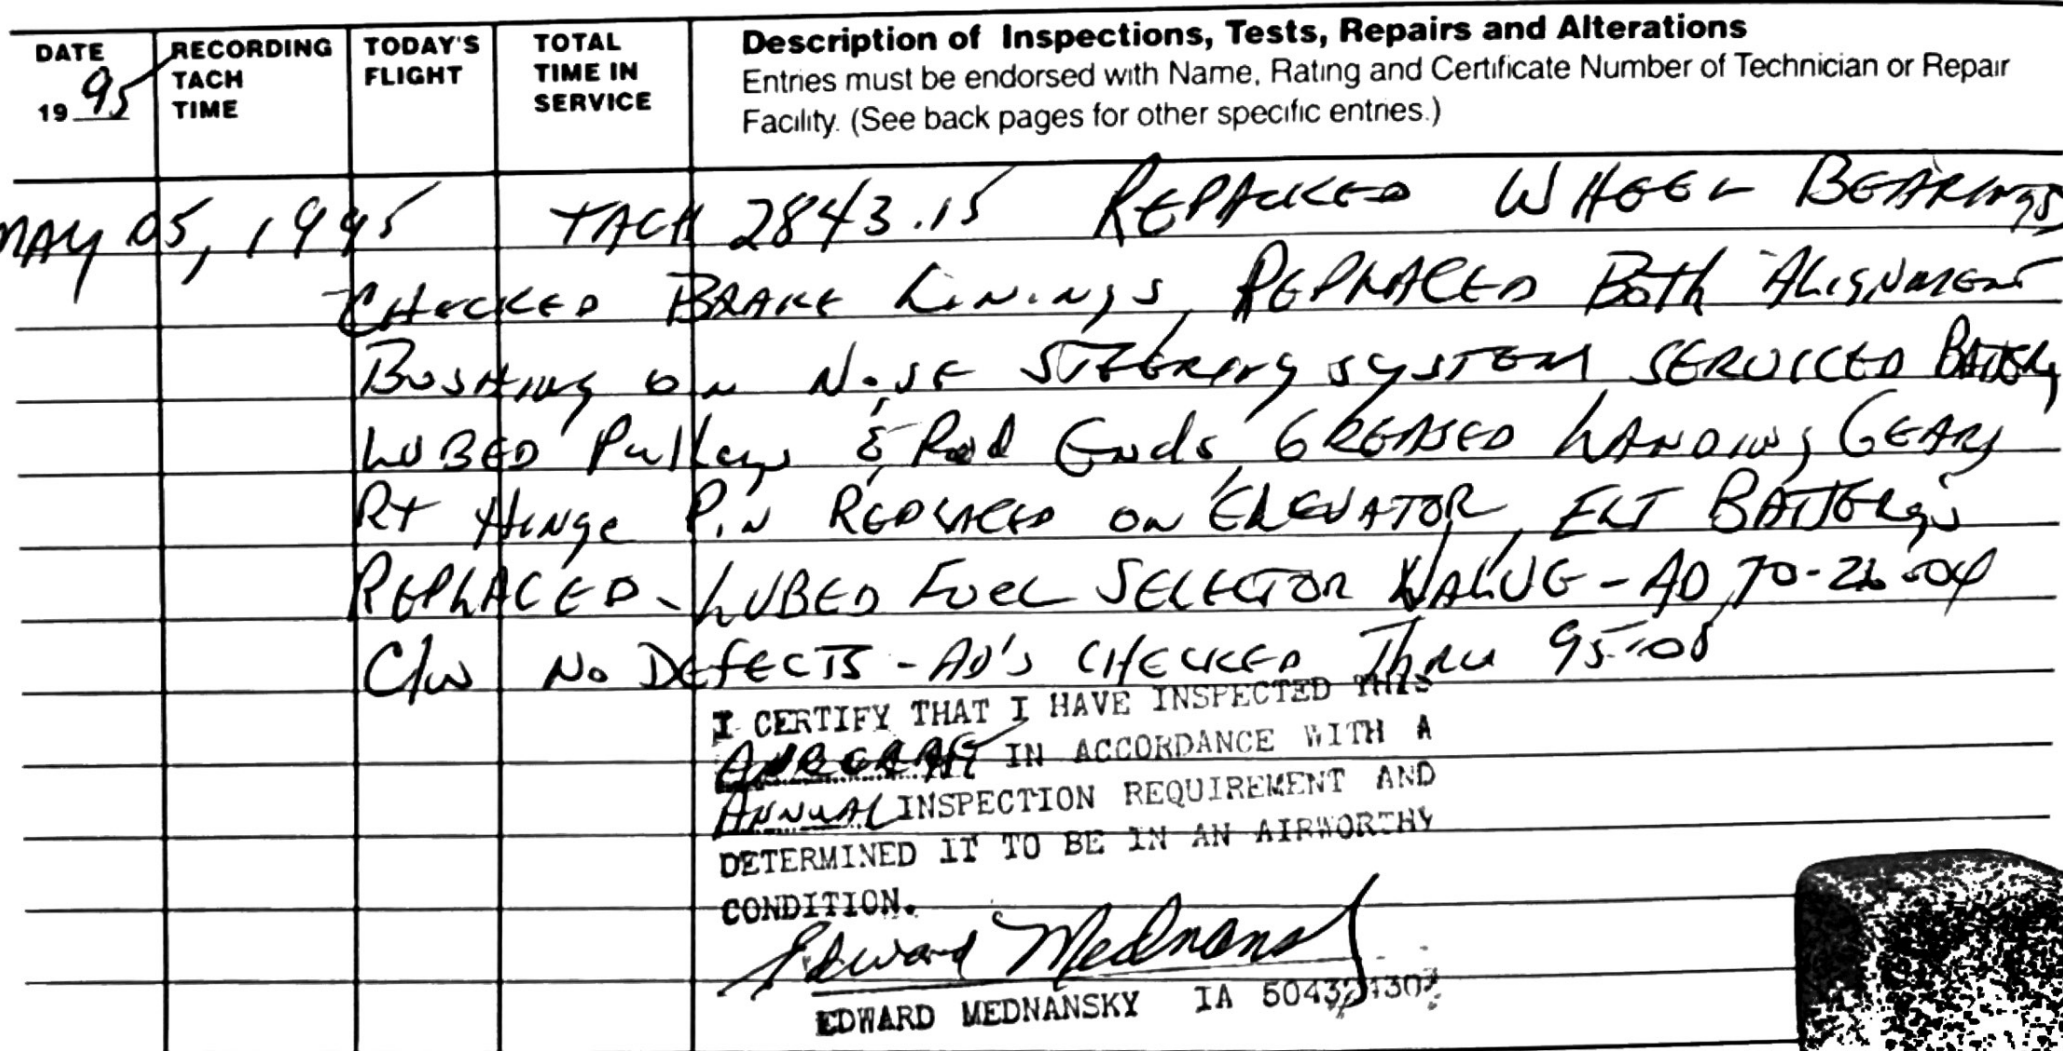 DATE
19 95
RECORDING
TACH
TIME
TODAY'S
FLIGHT
TOTAL
TIME IN
SERVICE
Description of Inspections, Tests, Repairs and Alterations
Entries must be endorsed with Name, Rating and Certificate Number of Technician or Repair
Facility. (See back pages for other specific entries.)
MAY 05, 1995 TACH 2843.15 REPACKED WHEEL BEARINGS
CHECKED BRAKE LININGS, REPLACED Both ALIGNMENT
BUSHING ON NOSE STEERING SYSTEM SERVICED BATTERY,
LUBED Pulleys & Rod Ends, GREASED LANDING GEAR,
RT HINGE PIN REPLACED ON ELEVATOR, ELT BATTERYS
REPLACED - LUBED FUEL SELECTOR VALVE - AD 70-26-04
C/W NO DEFECTS - AD'S CHECKED THRU 95-08
I CERTIFY THAT I HAVE INSPECTED THIS
AIRCRAFT IN ACCORDANCE WITH A
ANNUAL INSPECTION REQUIREMENT AND
DETERMINED IT TO BE IN AN AIRWORTHY
CONDITION.
Edward Mednansky
EDWARD MEDNANSKY IA